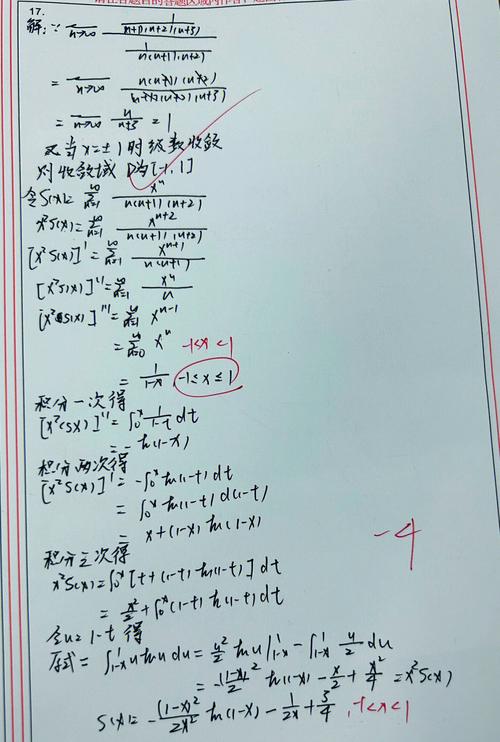 17.
解: ∵ lim n→∞ \frac{\frac{1}{(n+1)(n+2)(n+3)}}{\frac{1}{n(n+1)(n+2)}}
= lim n→∞ \frac{n(n+1)(n+2)}{(n+1)(n+2)(n+3)}
= lim n→∞ \frac{n}{n+3} = 1
又当 x=±1 时级数收敛
则收敛域 D为[-1,1]
令S(x)= \sum_{n=1}^{∞} \frac{x^n}{n(n+1)(n+2)}
x²S(x)= \sum_{n=1}^{∞} \frac{x^{n+2}}{n(n+1)(n+2)}
[x²S(x)]'= \sum_{n=1}^{∞} \frac{x^{n+1}}{n(n+1)}
[x²S(x)]''= \sum_{n=1}^{∞} \frac{x^n}{n}
[x²S(x)]'''= \sum_{n=1}^{∞} x^{n-1}
= \sum_{n=0}^{∞} x^n -1<x<1
= \frac{1}{1-x}, -1≤x≤1
积分一次得
[x²S(x)]''= ∫_0^x \frac{1}{1-t} dt
= -ln(1-x)
积分两次得
[x²S(x)]'= -∫_0^x ln(1-t)dt
= ∫_0^x ln(1-t)d(1-t)
= x+(1-x)ln(1-x)
-4
积分三次得
x²S(x)=∫_0^x [t+(1-t)ln(1-t)]dt
= \frac{x²}{2}+∫_0^x (1-t)ln(1-t)dt
令u=1-t 得
原式= ∫_{1-x}^1 u ln u du= \frac{u²}{2} ln u|_{1-x}^1 - ∫_{1-x}^1 \frac{u}{2} du
= -\frac{(1-x)²}{2} ln(1-x) - \frac{x}{2} + \frac{x²}{4} = x²S(x)
S(x)= -\frac{(1-x)²}{2x²} ln(1-x) - \frac{1}{2x} + \frac{3}{4}, -1<x<1